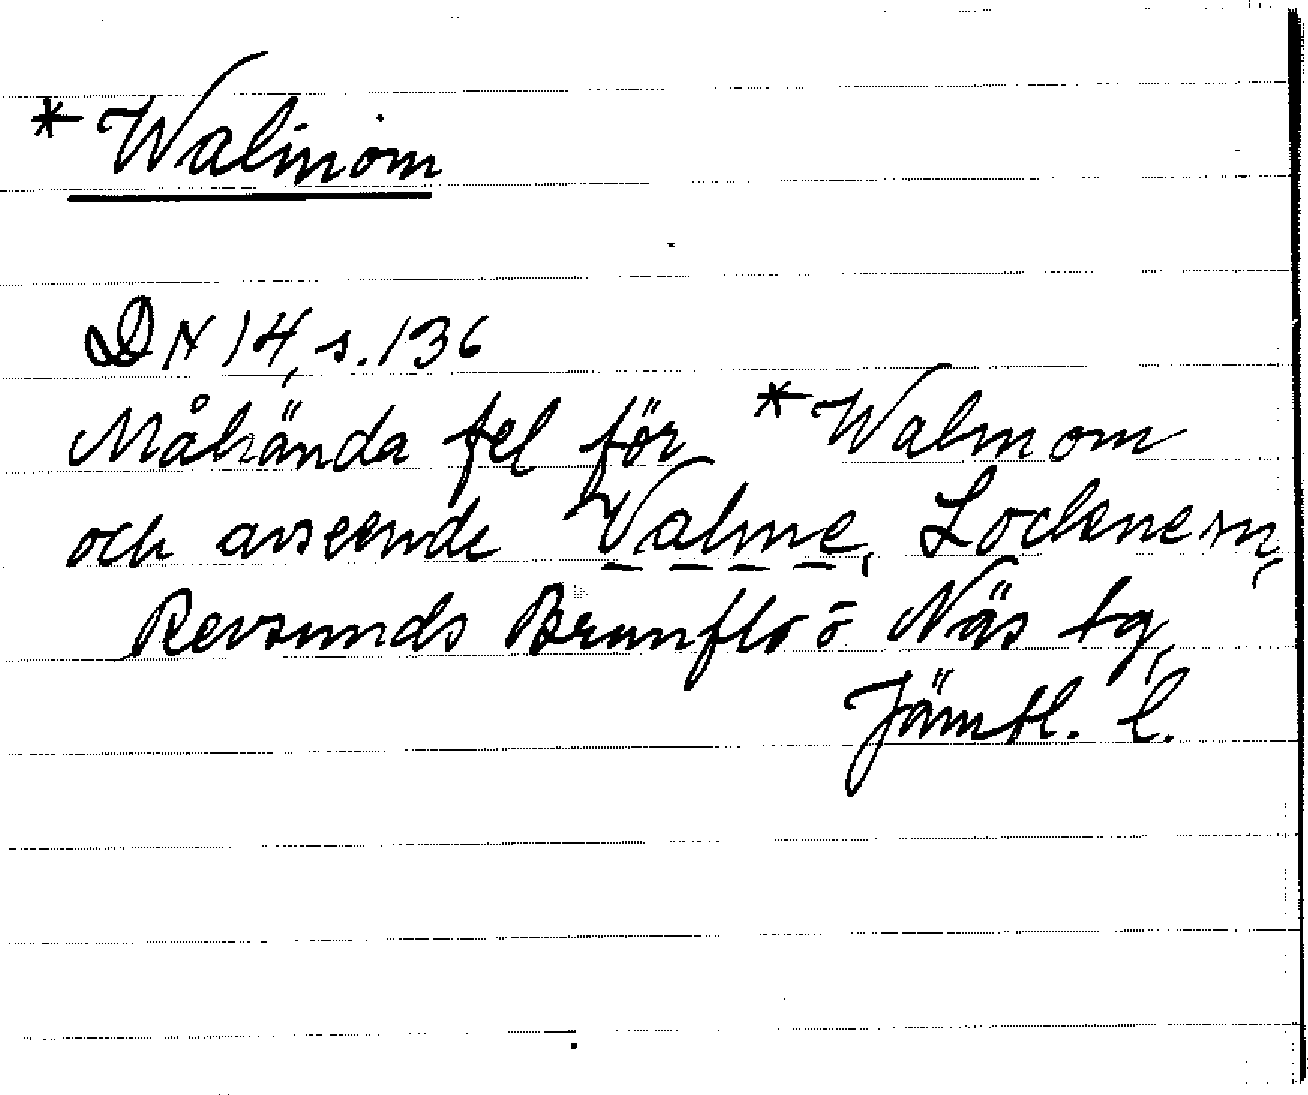 * Walinom
DN 14, s. 136
Måhända fel för *Walmom
och avseende Valme, Lockne sn,
Revsunds Brunflo o Näs tg,
Jämtl. l.